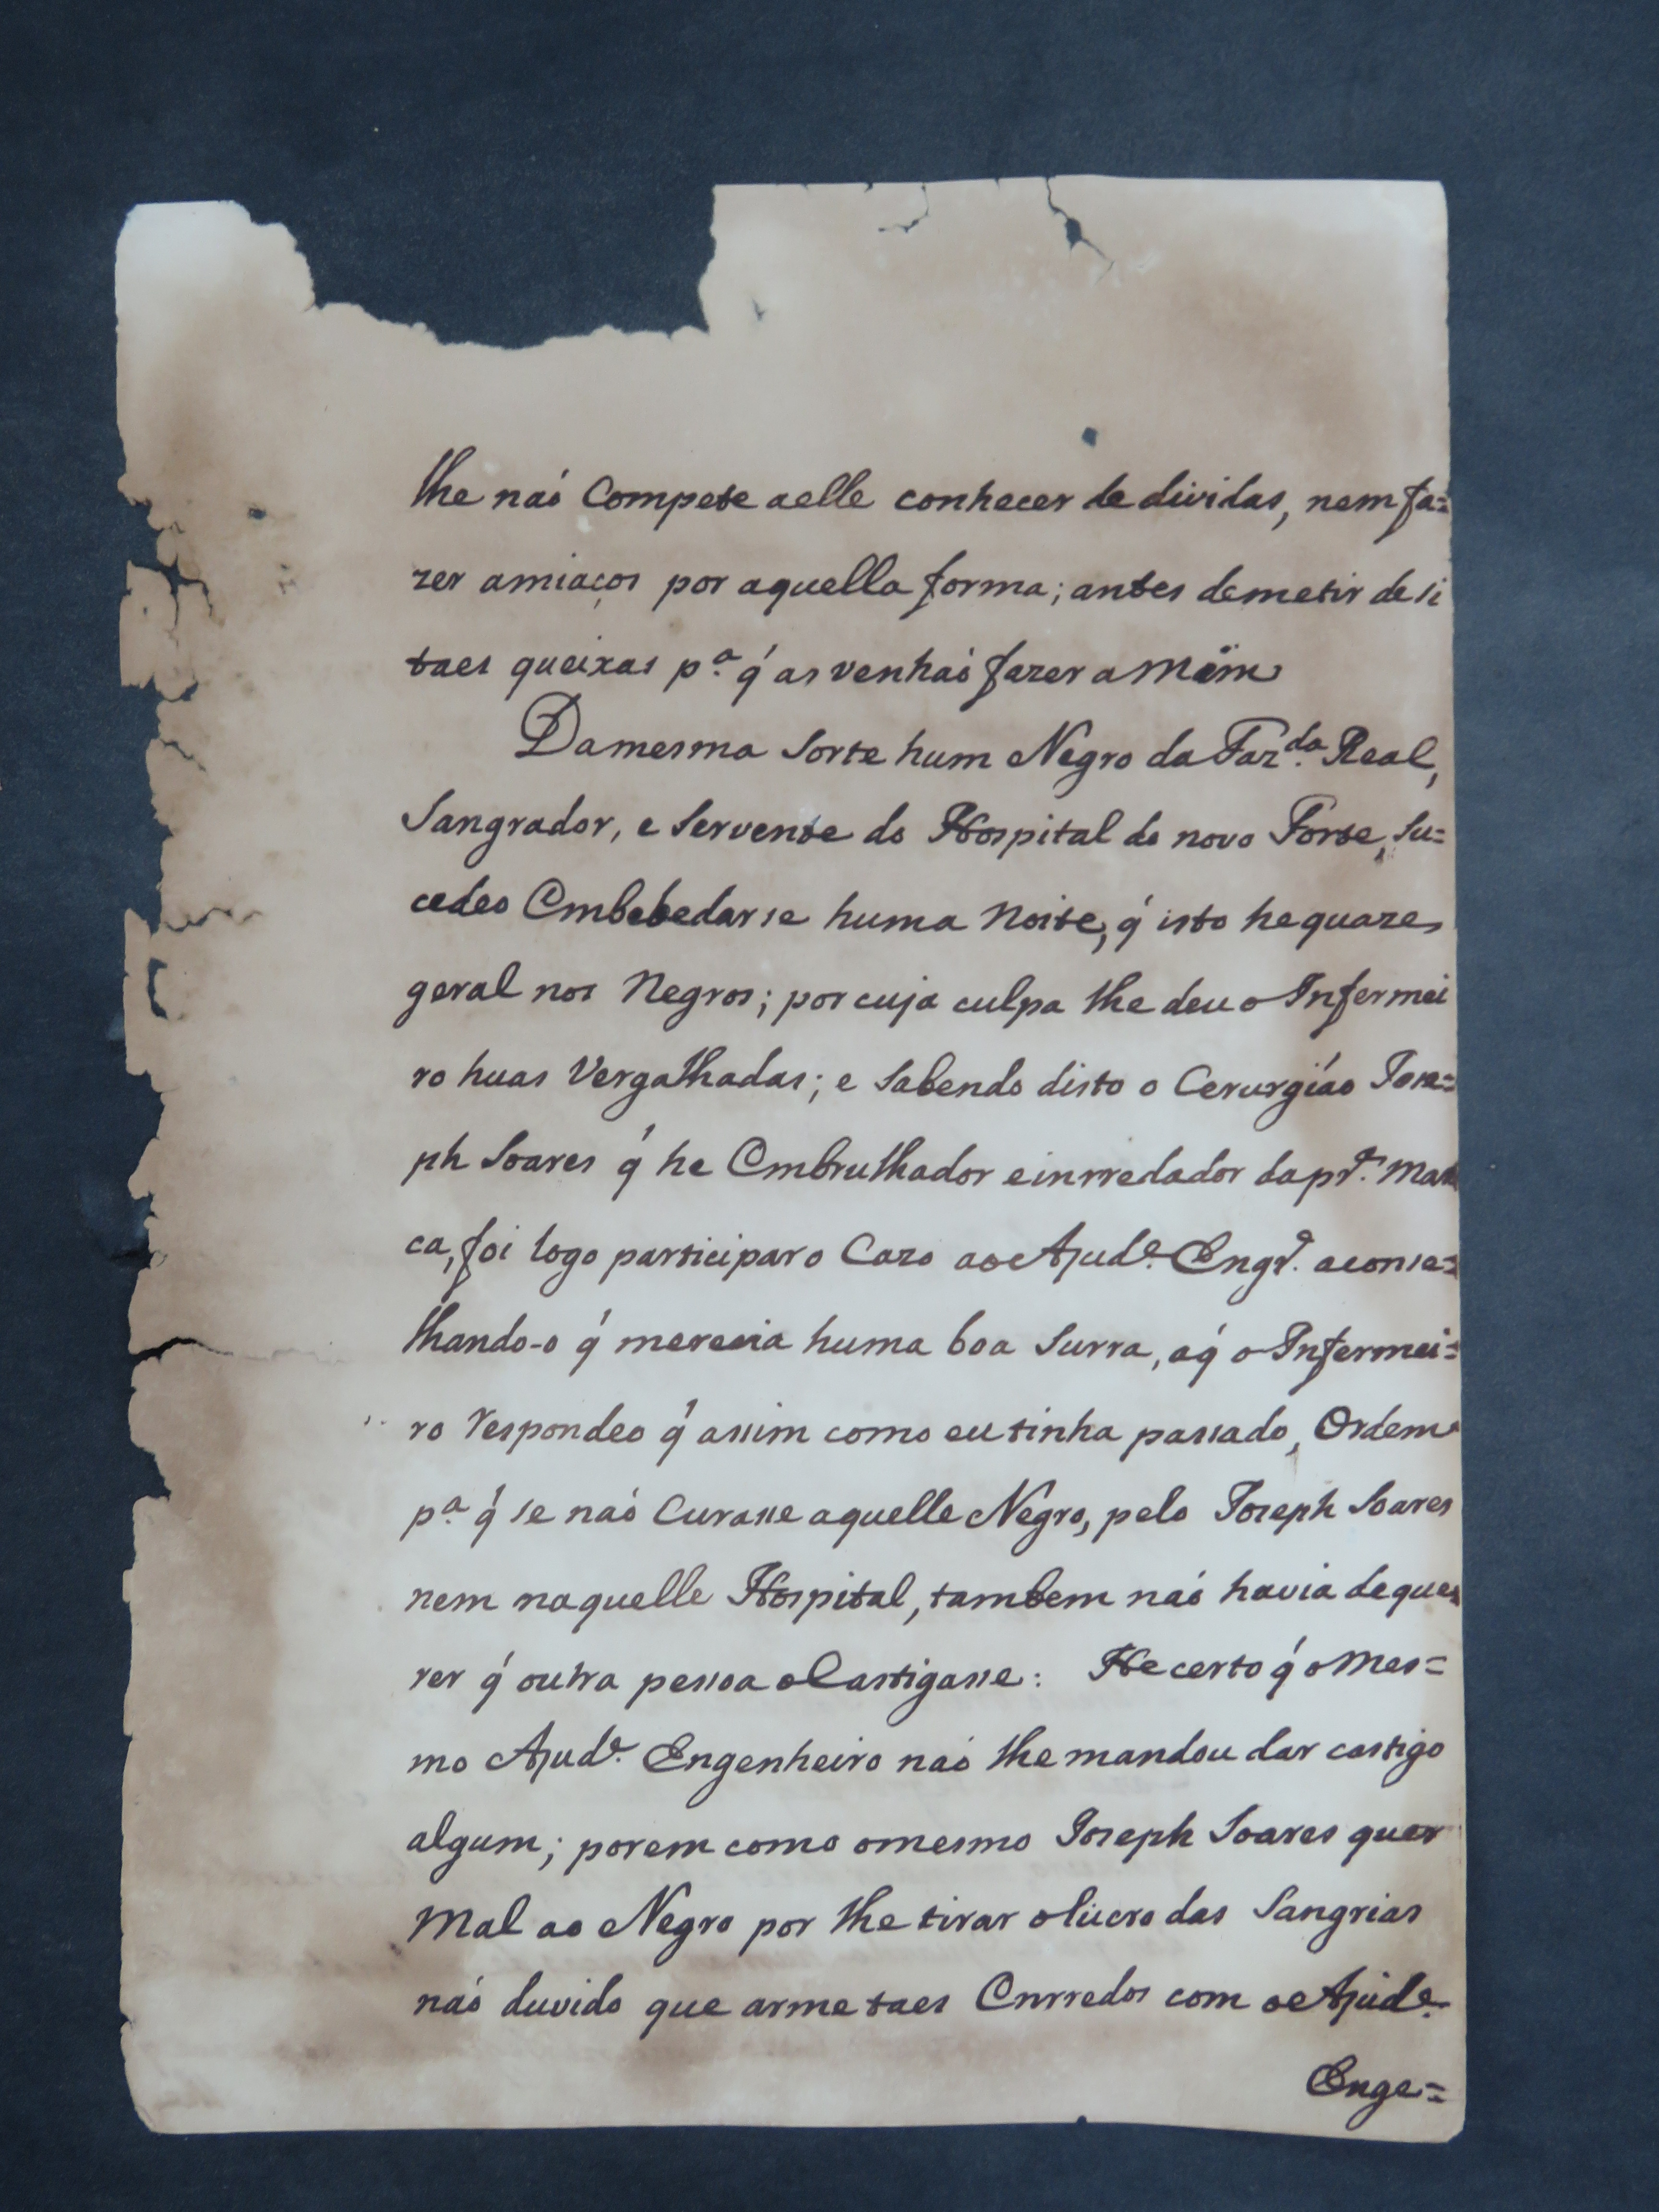 lhe naó Compete aelle conhecer de dividas, nem fa=
zer amiaços por aquella forma; antes demetir de si
taes queixas p.ª q́ as venhaó fazer a mim
Damesma Sorte hum Negro da Faz.da Real,
Sangrador, e Servente do Hospital do novo Forte, Su=
cedeo Embebedarse huma Noite, q́ isto he quaze
geral nos Negros; por cuja culpa lhe deu o Infermei
ro huas Vergalhadas; e Sabendo disto o Cerurgiáo Joze=
ph Soares q́ he Embrulhador e inrredador da pr.ª Mar
ca, foi logo participar o Cazo ao Ajud.e Engr.o aconse=
lhando-o q́ merecia huma boa Surra, aq́ o Infermei=
ro Respondeo q́ assim como eu tinha passado, Ordem
p.ª q́ se naó Curasse aquelle Negro, pelo Jozeph Soares
nem naquelle Hospital, tambem naó havia de que
rer q́ outra pessoa o Castigasse: He certo q́ o Mes=
mo Ajud.e Engenheiro naó lhe mandou dar castigo
algum; porem como omesmo Jozeph Soares quer
Mal ao Negro por lhe tirar olucro das Sangrias
naó duvido que arme taes Enrredos com o Ajud.e
Enge=